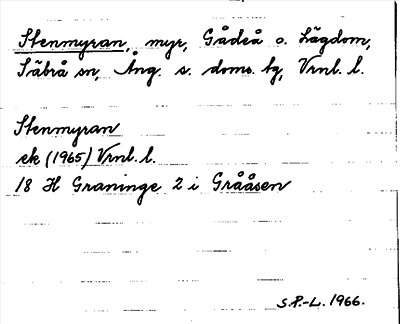 Stenmyran, myr, Gådeå o. Lägdom,
Säbrå sn, Ång. s. doms. tg, Vrnl. l.
Stenmyran
ek (1965) Vrnl. l.
18 H Graninge 2 i Grååsen
S.P.-L. 1966.